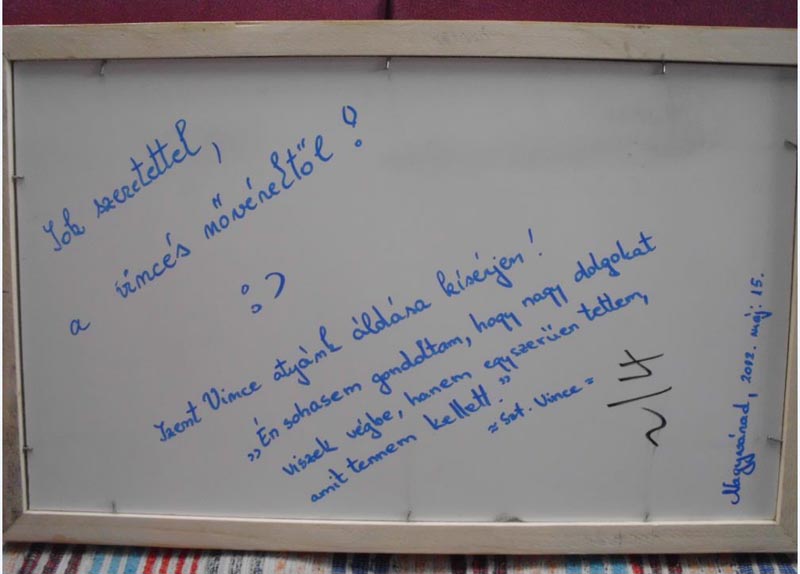 Sok szeretettel,
a vincés nővérektől!
:)
Szent Vince atyánk áldása kísérjen!
„Én sohasem gondoltam, hogy nagy dolgokat
viszek végbe, hanem egyszerűen tettem,
amit tennem kellett.”
= Szt. Vince =
~/4
Nagyvárad, 2012. máj. 15.